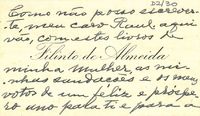 D2/30
Como não posso escrever-
te, meu caro Raul, aqui
vão, com estes livros de
Filinto de Almeida
minha mulher, as mi-
nhas saudações e os meus
votos de um feliz e próspe-
ro uno para ti e para a